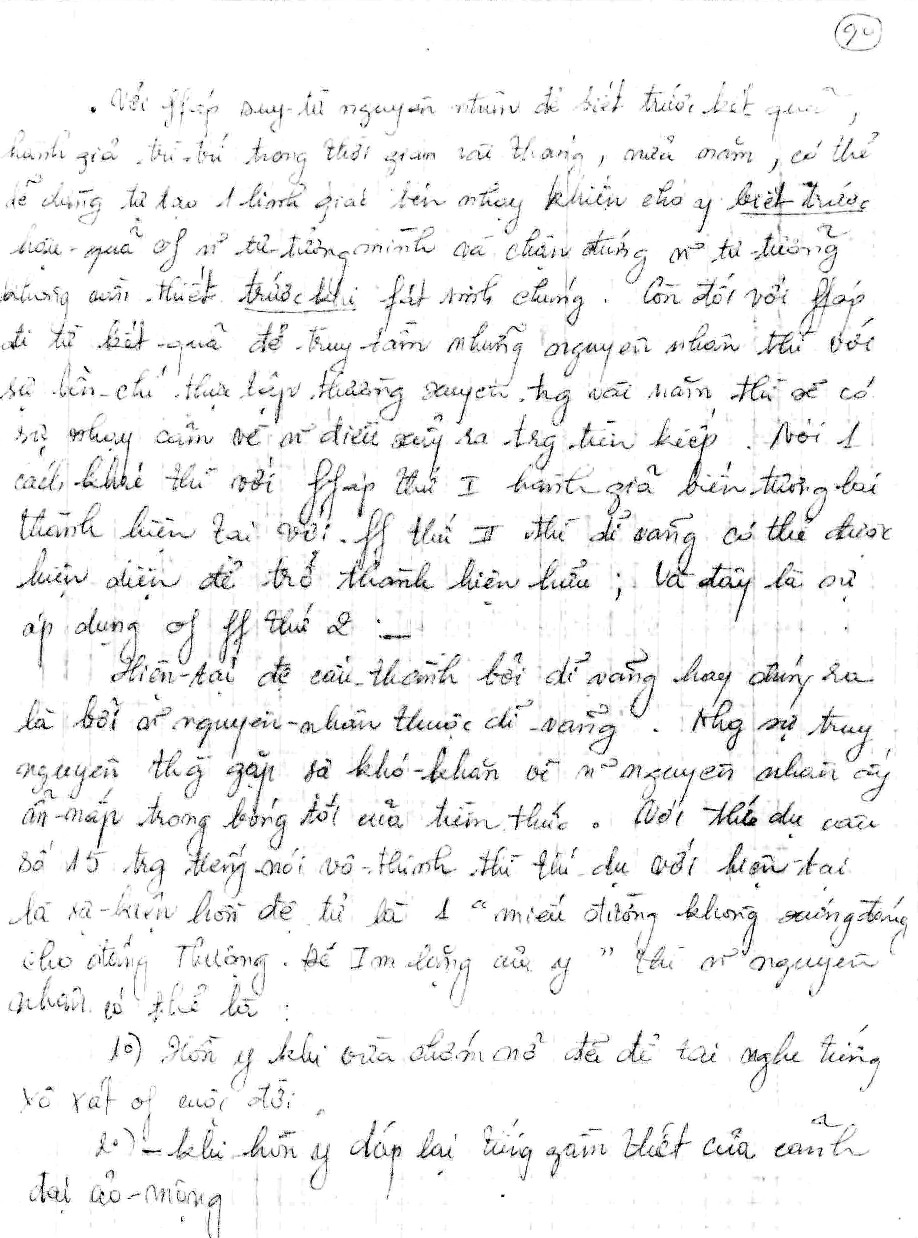 90
. Với ffáp suy từ nguyên nhân để biết trước kết quả,
hành giả trì-trú trong thời gian vài tháng, nửa năm, có thể
dễ dàng tự tạo 1 linh giác bén nhạy khiến cho y biết trước
hậu-quả of n~ tư-tưởng mình và chận đứng n~ tư-tưởng
không cần thiết trước khi fát sinh chúng. Còn đối với ffáp
đi từ kết-quả để truy-tầm những nguyên nhân thì với
sự bền-chí thực tập thường xuyên trg vài năm thì sẽ có
sự nhạy cảm về n~ điều xảy ra trg tiền kiếp. Nói 1
cách khác thì với ffáp thứ I hành giả biến tương lai
thành hiện tại với ff thứ II thì dĩ vãng có thể được
hiện diện để trở thành hiện hữu; Và đây là sự
áp dụng of ff thứ 2 :—
Hiện-tại để cấu-thành bởi dĩ vãng hay đúng ra
là bởi n~ nguyên-nhân thuộc dĩ-vãng. Nhg sự truy
nguyên thg~ gặp sự khó-khăn vì n~ nguyên nhân ấy
ẩn-nấp trong bóng tối của tiềm thức. Với thí dụ câu
số 15 trg tiếng nói vô-thinh thì thí dụ với hiện-tại
là sự-kiện hồn đệ tử là 1 "miếu đường không xứng đáng
cho đấng Thượng-Đế Im lặng của y" thì n~ nguyên
nhân có thể là :
1o) Hồn y khi vừa chớm nở đã để tai nghe tiếng
xô xát of cuộc đời.
2o) - khi hồn y đáp lại tiếng gầm thét của cảnh
đại ảo-mộng